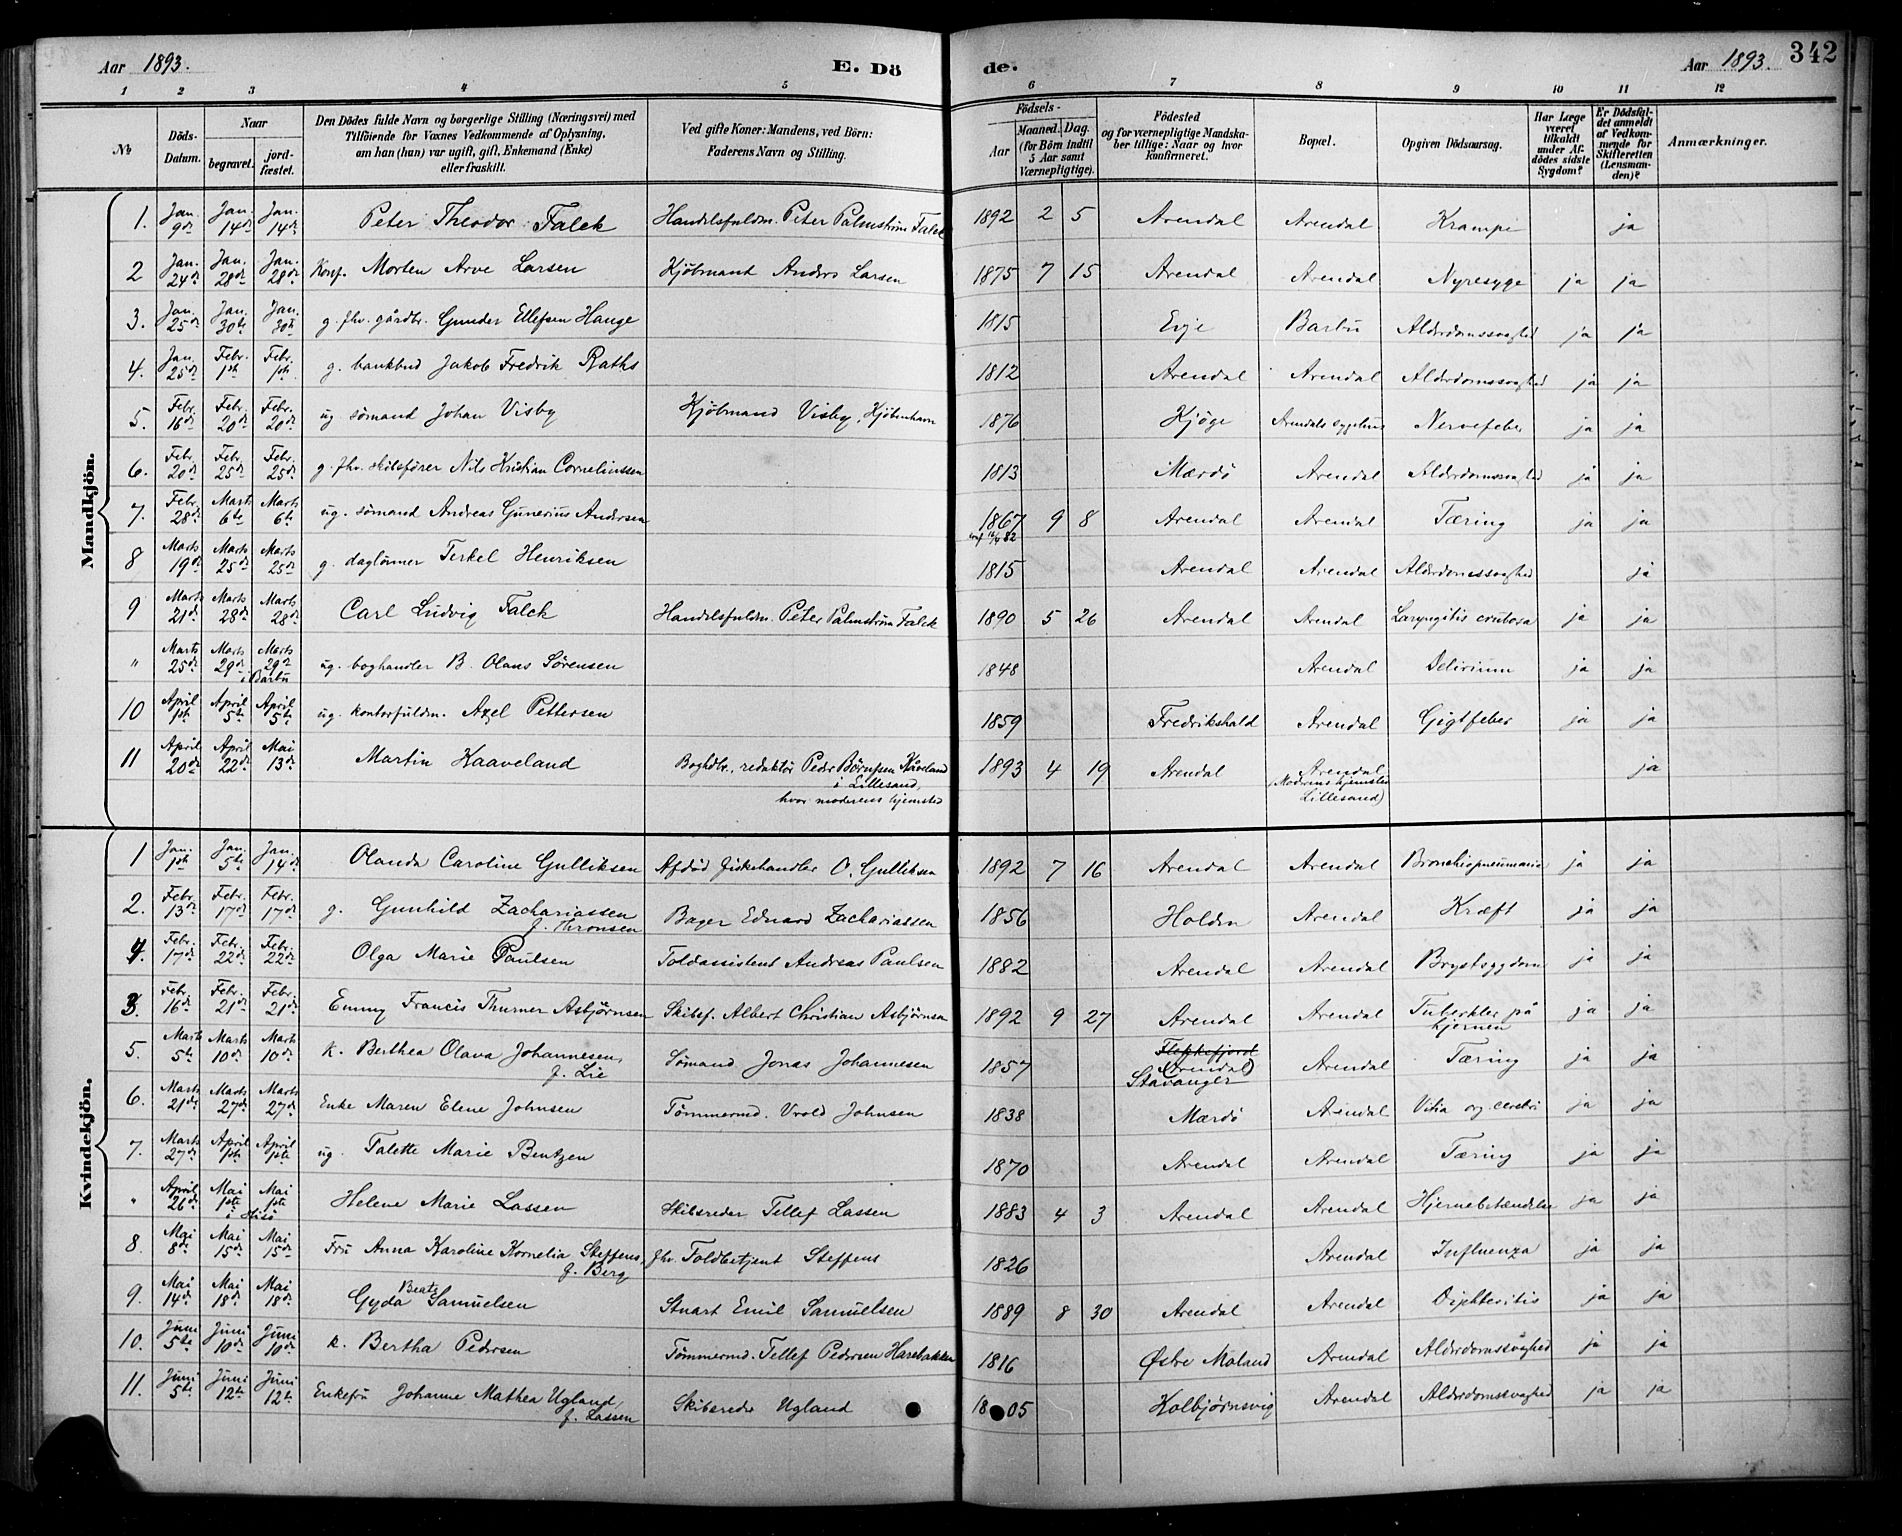 Aar 1893.
E. Döde.
Aar 1893.
342
1 2 3 4 5 6 7 8 9 10 11 12
№
Döds-Datum.
Naar
begravet.
jordfæstet.
Den Dödes fulde Navn og borgerlige Stilling (Næringsvei) med
Tilföiende for Voxnes Vedkommende af Oplysning,
om han (hun) var ugift, gift, Enkemand (Enke)
eller fraskilt.
Ved gifte Koner: Mandens, ved Börn:
Faderens Navn og Stilling.
Födsels-
Aar
Maaned. Dag.
(for Börn indtil
5 Aar samt
Værnepligtige).
Födested
og for værnepligtige Mandskaber tillige: Naar og hvor
konfirmeret.
Bopæl.
Opgiven Dödsaarsag.
Har Læge været tilkaldt under Afdödes sidste Sygdom?
Er Dödsfaldet anmeldt af Vedkommende for Skifteretten (Lensmanden)?
Anmærkninger.
Mandkjön.
1. Jan. 9de Jan. 14de Jan. 14de Peter Theodor Falck Handelsfuldm. Peter Palmstrøm Falck 1892 2 5 Arendal Arendal Krampe ja
2 Jan. 24de Jan. 28de Jan. 28de Konf. Morten Arve Larsen Kjøbmand Anders Larsen 1875 7 15 Arendal Arendal Nyresyge ja ja
3. Jan. 25de Jan. 30te Jan. 30te g. fhv. gårdbr. Gunder Ellefsen Hauge 1815 Evje Barbu Alderdomssvaghed ja ja
4. Jan. 25de Febr. 1ste Febr. 1ste g. bankbud Jakob Fredrik Raths 1812 Arendal Arendal Alderdomssvaghed ja ja
5. Febr. 16de Febr. 20de Febr. 20de ug sømand Johan Visby Kjøbmand Visby, Kjøbenhavn 1876 Kjøge Arendals sygehus Nervefeber ja ja
6. Febr. 20de Febr. 25de Febr. 25de g. fhv. skibsfører Nils Kristian Corneliussen 1813 Mærdø Arendal Alderdomssvaghed ja ja
7. Febr. 28de Marts 6te Marts 6te ug. sømand Andreas Gunerius Andersen 1867 9 8 Arendal Arendal Tæring ja ja
8 Marts 19de Marts 25de Marts 25de g. daglønner Terkel Henriksen 1815 Arendal Arendal Alderdomssvaghed ja
9 Marts 21de Marts 28de Marts 28de Carl Ludvig Falck Handelsfuldm. Peter Palmstrøm Falck 1890 5 26 Arendal Arendal Laryngitis crutosa ja ja
" Marts 25de Marts 29de Marts 29de i Barbu ug. boghandler B. Olaus Sørensen 1848 Arendal Delirium ja ja
10 April 1ste April 5te April 5te ug. kontorfuldm. Axel Pettersen 1859 Fredrikshald Arendal Gigtfeber ja ja
11 April 20de April 22de Mai 13de Martin Kaaveland Boghdlr., redaktør Peder Børufsen Kåveland 1893 4 19 Arendal Arendal ja
i Lillesand, (Moderens hjemsted
hvor moderens hjemsted Lillesand)
Kvindekjön.
1 Jan. 1ste Jan. 5te Jan. 14de Olanda Caroline Gulliksen Afdød fiskehandler O. Gulliksen 1892 7 16 Arendal Arendal Bronchiopneumonia ja ja
2. Febr. 13de Febr. 17de Febr. 17de g. Gunhild Zachariassen Bager Eduard Zachariassen 1856 Holden Arendal Kræft ja ja
f. Thronsen
4. Febr. 17de Febr. 22de Febr. 22de Olga Marie Paulsen Toldassistent Andreas Paulsen 1882 Arendal Arendal Brystsygdom ja ja
3. Febr. 16de Febr. 21de Febr. 21de Emmy Francis Thurmer Asbjørnsen Skibsf. Albert Christian Asbjørnsen 1892 9 27 Arendal Arendal Tuberkler på hjernen ja ja
5. Marts 5te Marts 10de Marts 10de k. Berthea Olava Johannesen, Sømand Jonas Johannesen 1857 Flekkefjord (Arendal) Stavanger Arendal Tæring ja ja
f. Lie
6. Marts 21de Marts 27de Marts 27de Enke Maren Elene Johnsen Tømmermd. Vrold Johnsen 1838 Mærdø Arendal Vitia og cerebri ja ja
7. Marts 27de April 1ste April 1ste ug. Talette Marie Bentzen 1870 Arendal Arendal Tæring ja ja
" April 26de Mai 1ste Mai 1ste i Hisø Helene Marie Lassen Skibsreder Tellef Lassen 1883 4 3 Arendal Arendal Hjernebetændelse ja ja
8. Mai 8de Mai 15de Mai 15de Fru Anna Karoline Kornelia Steffens, fhv. Toldbetjent Steffens 1826 Arendal Influenza ja ja
f. Berg
9. Mai 14de Mai 18de Mai 18de Gyda Beate Samuelsen Stuart Emil Samuelsen 1889 8 30 Arendal Arendal Diphteritis ja ja
10. Juni 5te Juni 10de Juni 10de k. Bertha Pedersen Tømmermd. Tellef Pedersen Harebakken 1816 Østre Moland Arendal Alderdomssvaghed ja ja
11. Juni 5te Juni 12te Juni 12te Enkefru Johanne Mathea Ugland, Skibsreder Ugland 1805 Kolbjørnsvig Arendal Alderdomssvaghed ja ja
f. Lassen